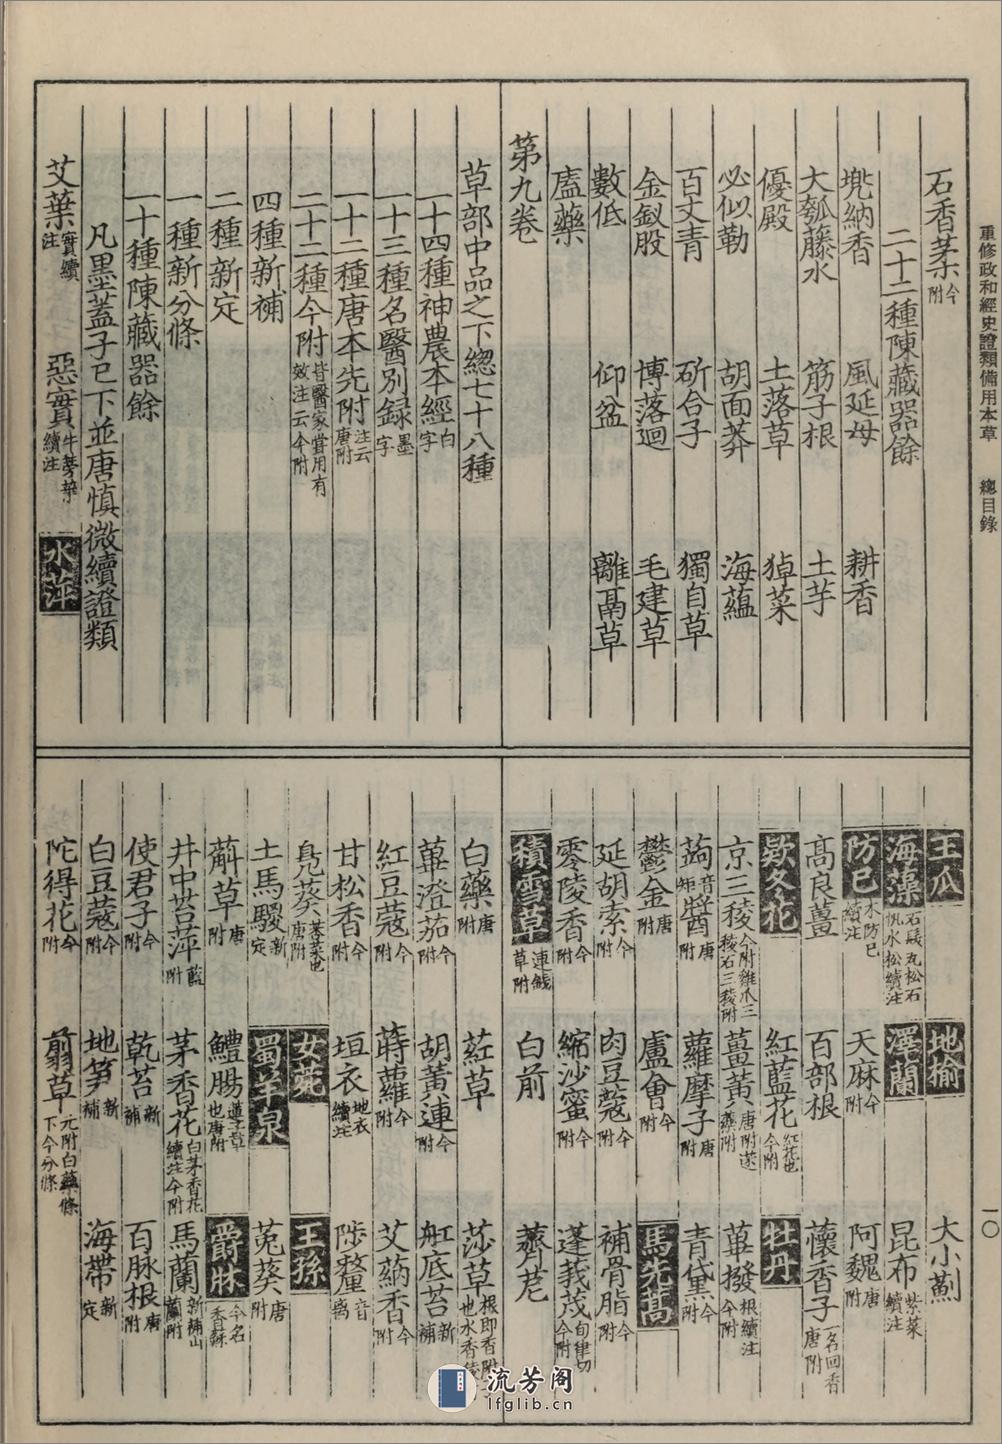 重修政和經史證類備用本草　總目錄　一〇
石香葇今附
二十二種陳藏器餘
兠納香　風延母　耕香
大瓠藤水　筋子根　土芋
優殿　土落草　㹿菜
必似勒　胡面莽　海蘊
百丈青　斫合子　獨自草
金釵股　博落迴　毛建草
數低　仰盆　離鬲草
廅藥
第九卷
草部中品之下總七十八種
一十四種神農本經白字
一十三種名醫別録墨字
一十二種唐本先附注云唐附
二十二種今附皆醫家嘗用有效注云今附
四種新補
二種新定
一種新分條
一十種陳藏器餘
凡墨蓋子已下並唐慎微續證類
艾葉實續注　惡實牛蒡葉續注　水萍
王瓜　地榆　大小薊
海藻石髮瓦松石帆水松續注　澤蘭　昆布紫菜續注
防己木防己續注　天麻今附　阿魏唐附
高良薑　百部根　懷香子一名回香唐附
款冬花　紅藍花紅花也今附　牡丹
京三稜今附雞爪三稜石三稜附　薑黃唐附蒁藥附　蓽撥今附根續注
蒟音矩醬唐附　蘿摩子唐附　青黛今附
鬱金唐附　盧會今附　馬先蒿
延胡索今附　肉豆蔻今附　補骨脂今附
零陵香今附　縮沙蜜今附　蓬莪茂旬律切今附
積雪草連錢草附　白前　薺苨
白藥唐附　葒草　莎草根即香附子也水香稜
蓽澄茄今附　胡黃連今附　舡底苔新補
紅豆蔻今附　蒔蘿今附　艾蒳香今附
甘松香今附　垣衣地衣續注　陟釐音离
鳧葵荇菜也唐附　女菀　王孫
土馬騣新定　蜀羊泉　菟葵唐附
蔛草唐附　鱧腸蓮子草也唐附　爵牀今名香蘇
井中苔萍藍附　茅香花白茅香花續注今附　馬蘭新補山蘭附
使君子今附　乾苔新補　百脉根唐附
白豆蔻今附　地笋新補　海帶新定
陀得花今附　翦草元附白藥條下今分條
流芳阁
lfglib.cn